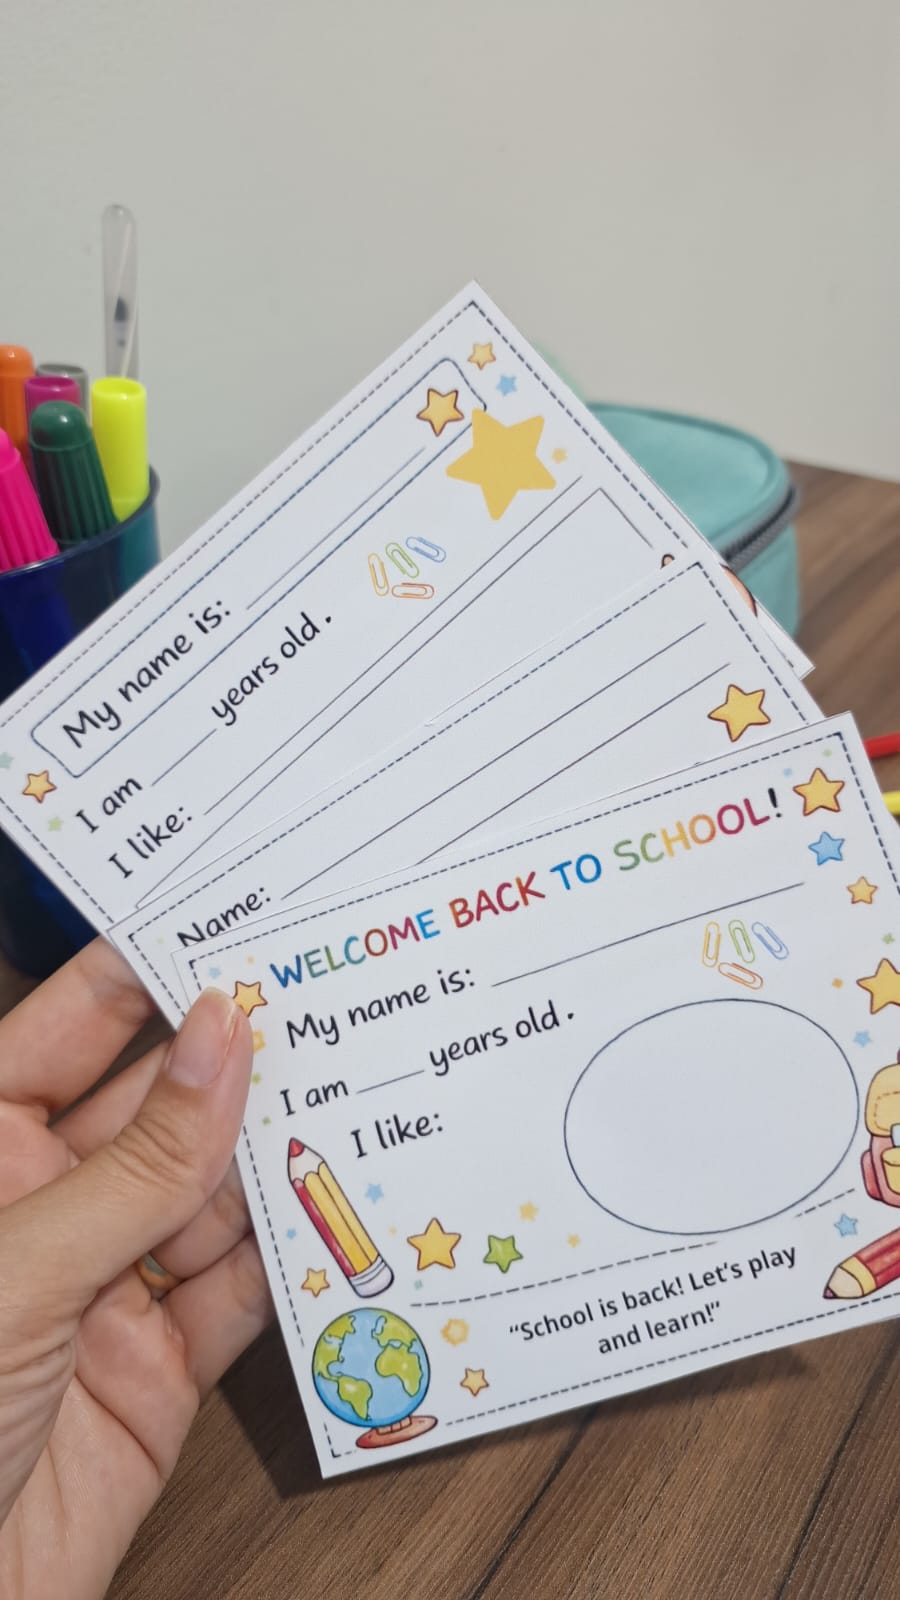 My name is:
I am ____ years old.
I like:
Name:
WELCOME BACK TO SCHOOL!
My name is:
I am ____ years old.
I like:
“School is back! Let's play
and learn!”